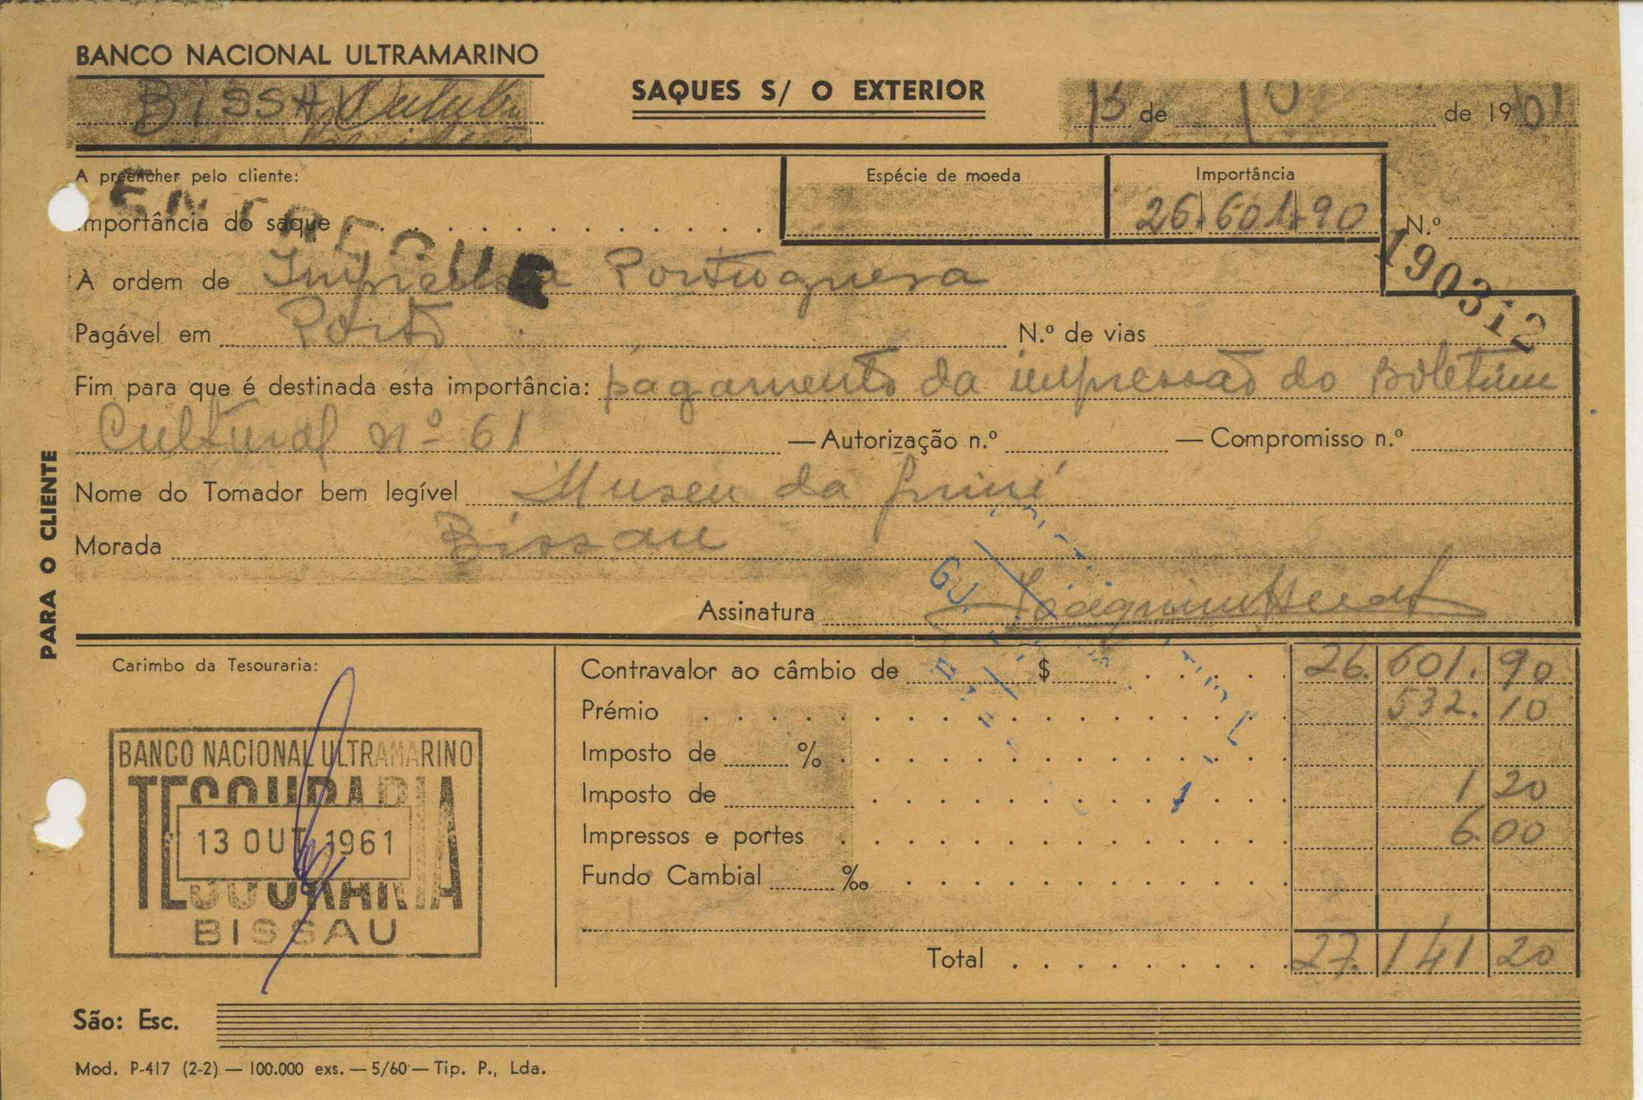 BANCO NACIONAL ULTRAMARINO
BISSAU
SAQUES S/ O EXTERIOR
13 de 10 de 1961
A preencher pelo cliente:
Espécie de moeda
Importância
Importância do saque
26.601.90
N.º
190312
ENTREGUE
À ordem de Imprensa Portuguesa
Pagável em Porto
N.º de vias
Fim para que é destinada esta importância: pagamento da impressão do Boletim
Cultural nº 61 — Autorização n.º — Compromisso n.º
Nome do Tomador bem legível Museu da Guiné
Morada Bissau
Assinatura
PARA O CLIENTE
Carimbo da Tesouraria:
BANCO NACIONAL ULTRAMARINO
TESOURARIA
13 OUT. 1961
TESOURARIA
BISSAU
Contravalor ao câmbio de $ 26.601.90
Prémio 532.10
Imposto de %
Imposto de 1 20
Impressos e portes 6.00
Fundo Cambial ‰
Total 27.141 20
São: Esc.
Mod. P-417 (2-2) — 100.000 exs. — 5/60 — Tip. P., Lda.